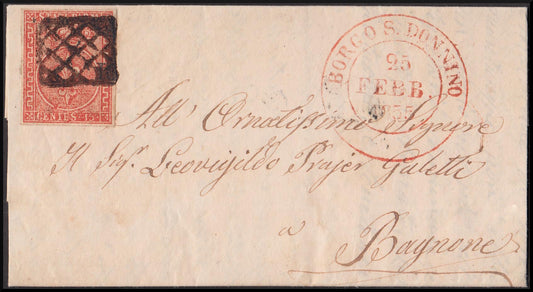 BORGO S. DONNINO
25
FEBB.
1855
CENTES. 15
All' Ornatissimo Signore
Il Sigr. Leovigildo Prajer Galetti
a
Bagnone